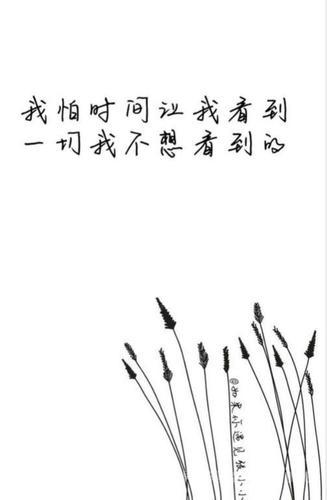 我怕时间让我看到
一切我不想看到的
@如果你遇见张小小